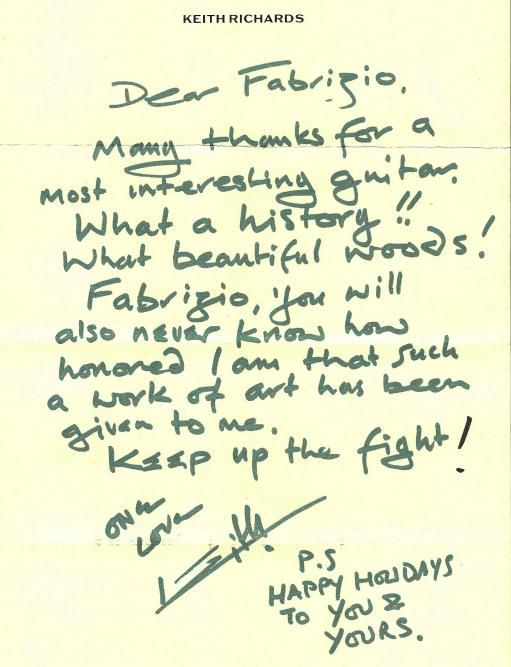 KEITH RICHARDS
Dear Fabrizio,
Many thanks for a
most interesting guitar.
What a history!!
What beautiful woods!
Fabrizio, you will
also never know how
honored I am that such
a work of art has been
given to me.
Keep up the fight!
One
Love
Keith.
P.S
HAPPY HOLIDAYS
TO YOU &
YOURS.